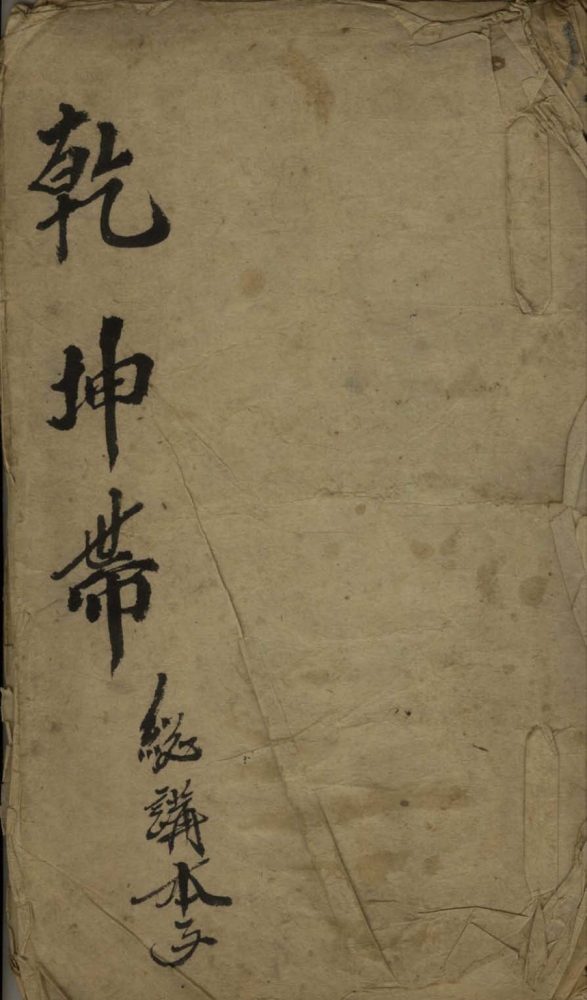 乾坤帶
総講本子